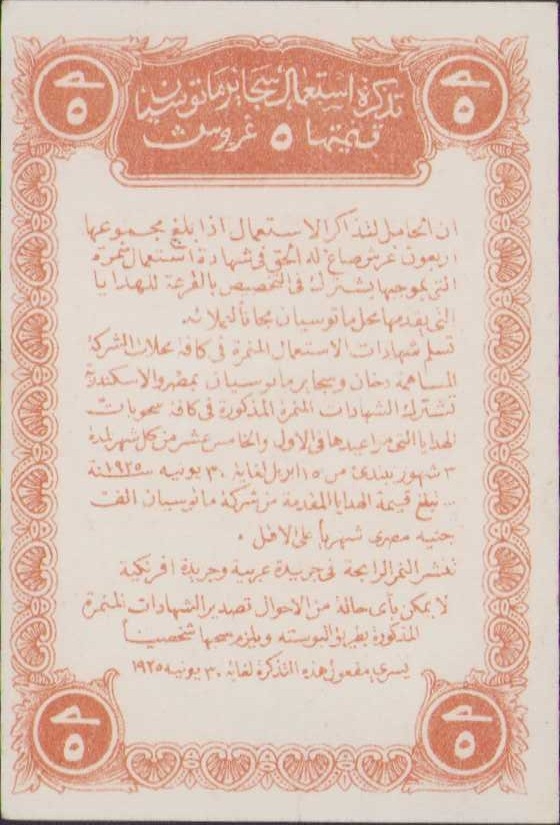 صـ
٥
صـ
٥
تذكرة استعمال سجاير ماتوسيان
قيمتها ٥ غروش
ان الحامل لتذاكر الاستعمال اذا بلغ مجموعها
اربعون غرش صاغ له الحق فى شهادة استعمال نمرة
التى بموجبها يشترك فى التخصيص بالقرعة للهدايا
التى يقدمها محل ماتوسيان مجانا لعملائه.
تسلم شهادات الاستعمال المنمرة فى كافة محلات الشركة
المساهمة دخان وسجاير ماتوسيان بمصر والاسكندرية
تشترك الشهادات المنمرة المذكورة فى كافة سحوبات
الهدايا التى مواعيدها فى الاول والخامس عشر من كل شهر لمدة
٣ شهور يبتدئ من ١٥ ابريل لغاية ٣٠ يونيه سنة ١٩٢٥
... تبلغ قيمة الهدايا المقدمة من شركة ماتوسيان الف
جنيه مصرى شهريا على الاقل .
تنشر النمر الرابحة فى جريدة عربية وجريدة افرنكية
لا يمكن بأى حالة من الاحوال تصدير الشهادات المنمرة
المذكورة بطريق البوسته ويلزم سحبها شخصيا
يسرى مفعول هذه التذكرة لغاية ٣٠ يونيه ١٩٢٥
صـ
٥
صـ
٥